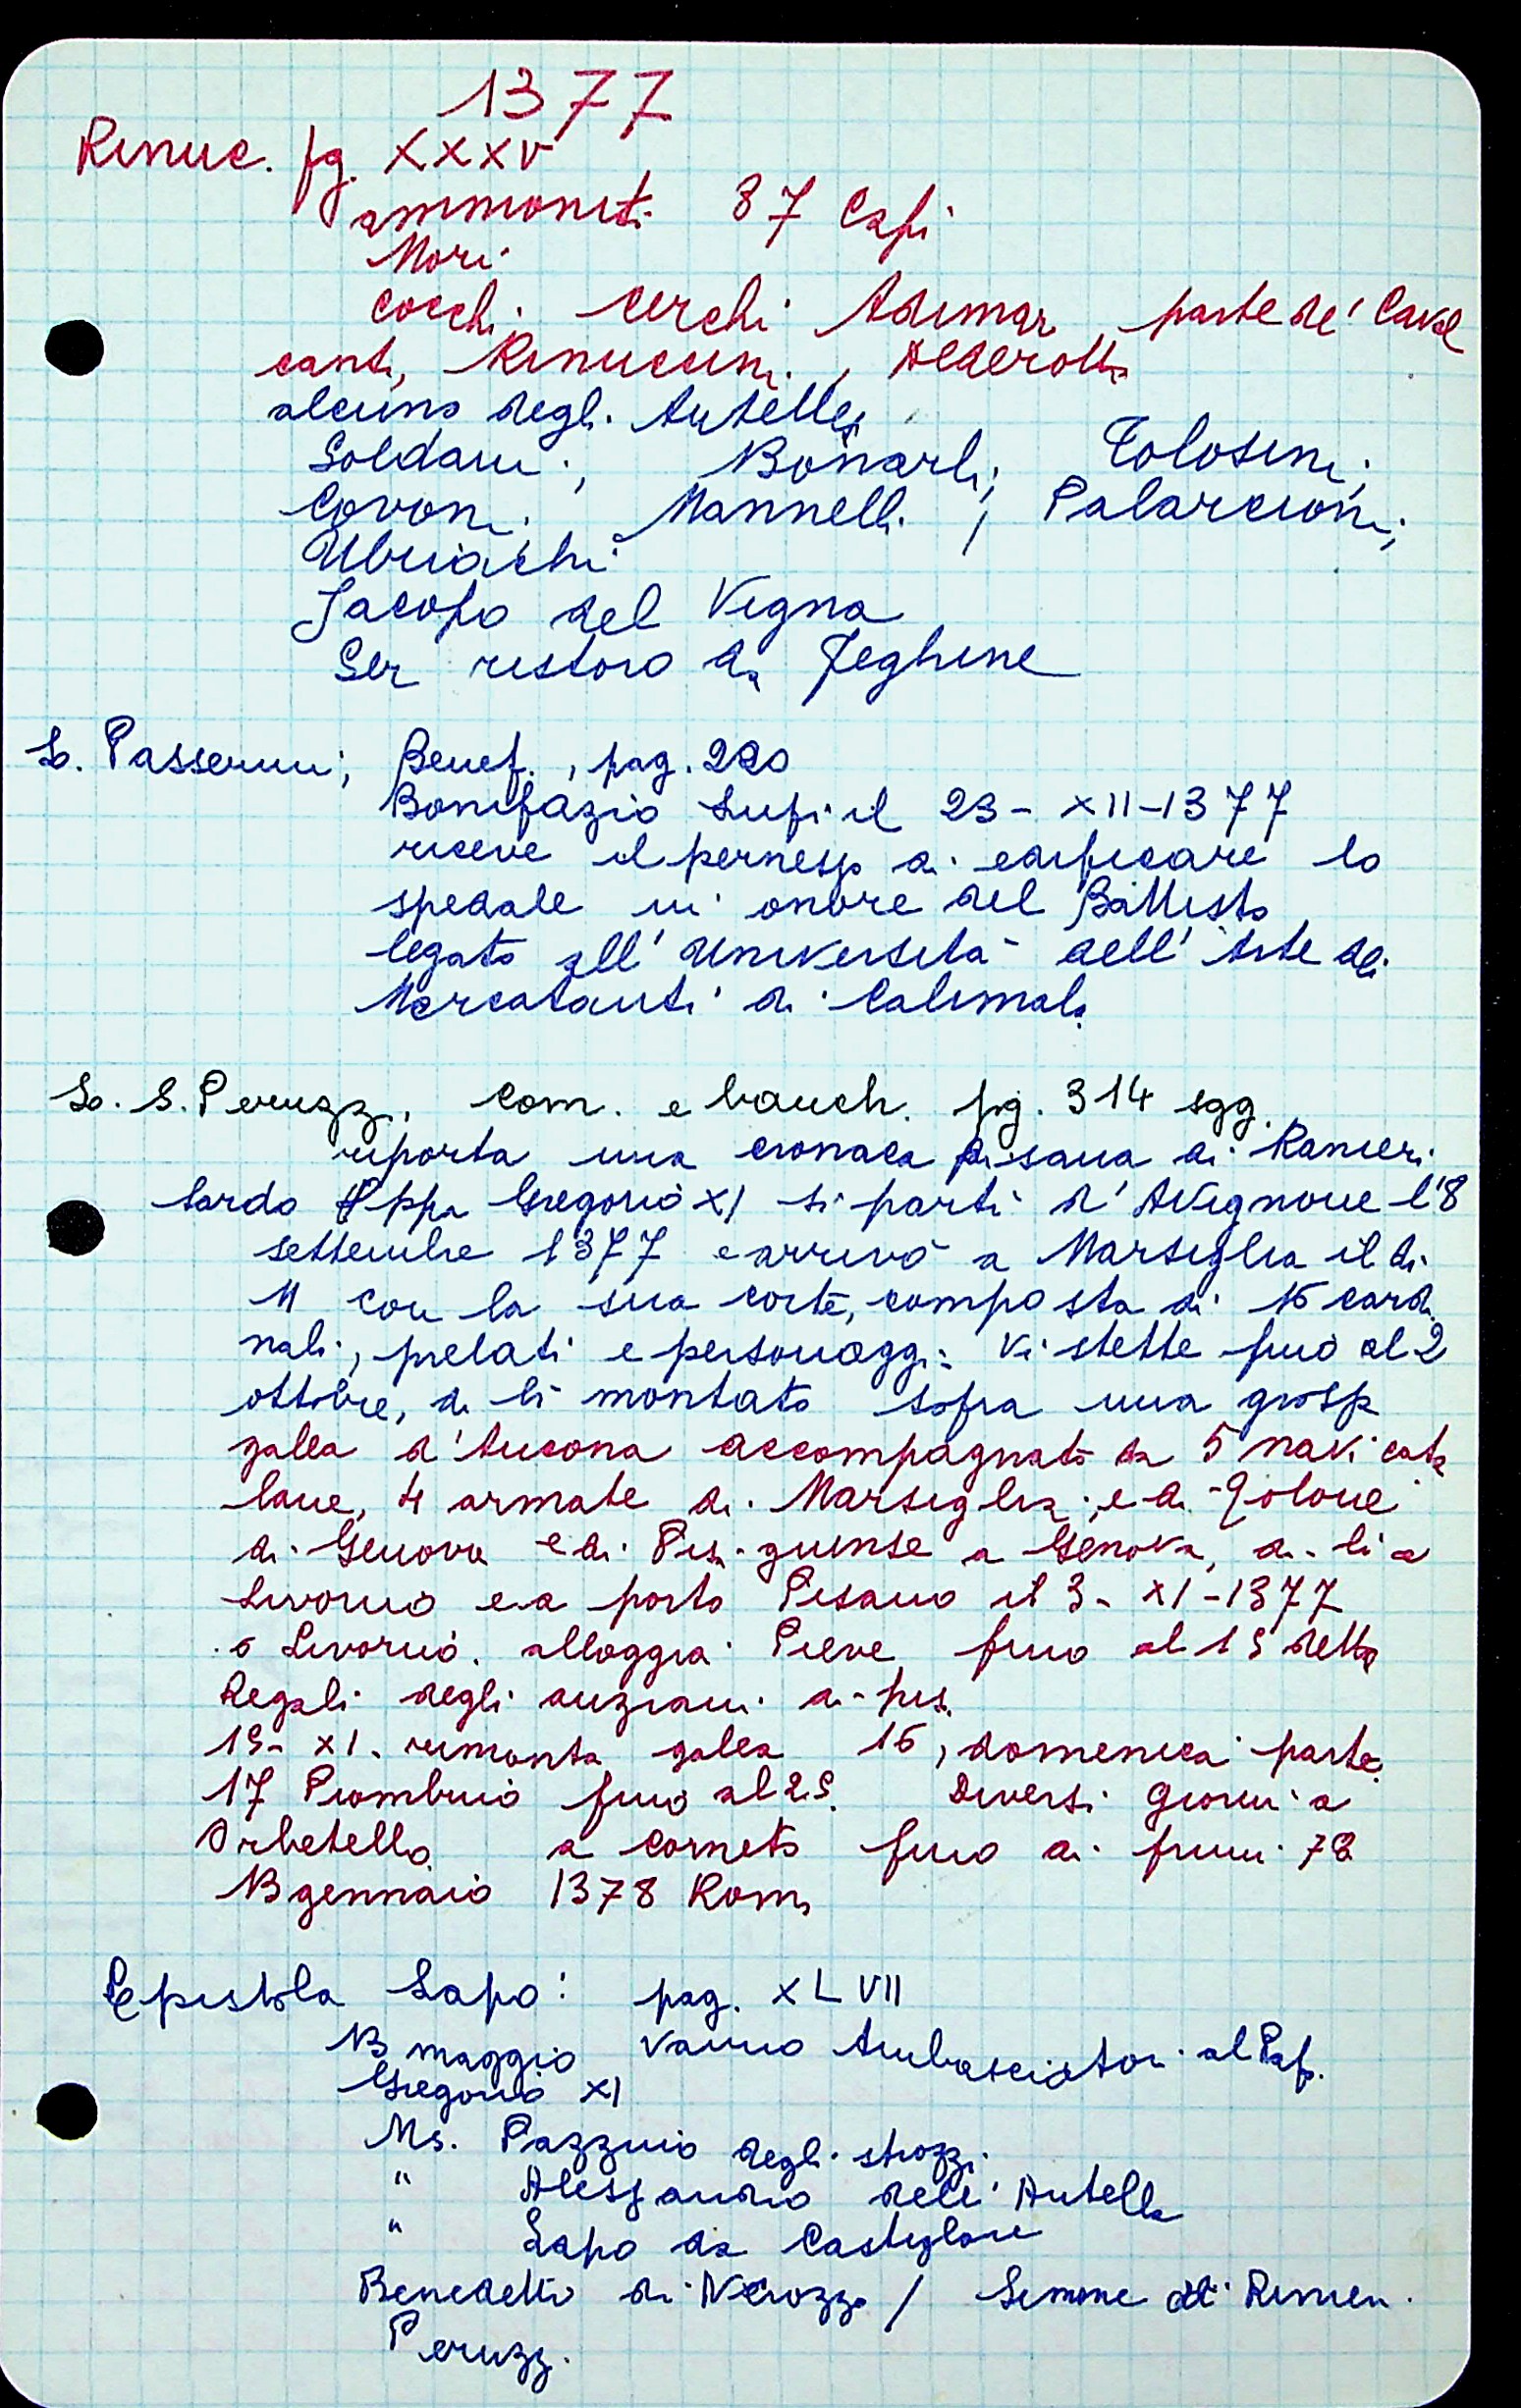 1377
Rinuc. pg. XXXV
ammoniti 87 Capi
Mori
Cocchi, Cerchi Adimar, parte de' Caval
canti, Rinuccini, Alderotti
alcuno degli Antellesi
Soldani; Bonarli; Tolosini;
Covoni; Mannelli; Palarcioni;
Ubriachi
Jacopo del Vigna
Ser ristoro di Jeghine
L. Passerini; Benef., pag. 220
Bonifazio Lupi il 23-XII-1377
riceve il permesso di edificare lo
spedale in onore del Battista
legato all' Università dell' Arte dei
Mercatanti di Calimala
L. S. Peruzzi, com. e banch. pg. 314 sgg.
riporta una cronaca pisana di Ranieri
Sardo Pppa Gregorio XI si partì d' Avignone l'8
settembre 1377 e arrivò a Marsiglia il dì
11 con la sua corte, composta di 16 cardi
nali, prelati e personaggi: Vi stette fino al 2
ottobre, di lì montato sopra una grossa
galea d'Ancona accompagnato da 5 navi cata
lane, 4 armate di Marsiglia, e di Tolone
di Genova e di Pisa. giunse a Genova, di lì a
Livorno e a porto Pisano il 3-XI-1377
a Livorno. alloggia Pieve fino al 15 detto
Regali degli anziani di pis.
15-XI. rimonta galea 16, domenica parte
17 Piombino fino al 25. Diversi giorni a
Orbetello a Corneto fino ai primi 78
13 gennaio 1378 Roma
Epistola Lapo: pag. XLVII
13 maggio vanno Ambasciatori al Pap.
Gregorio XI
Ms. Pazzino degli strozzi
" Alessandro dell' Antella
" Lapo da Castiglone
Benedetto di Nerozzo / Simone di Rinieri
Peruzzi